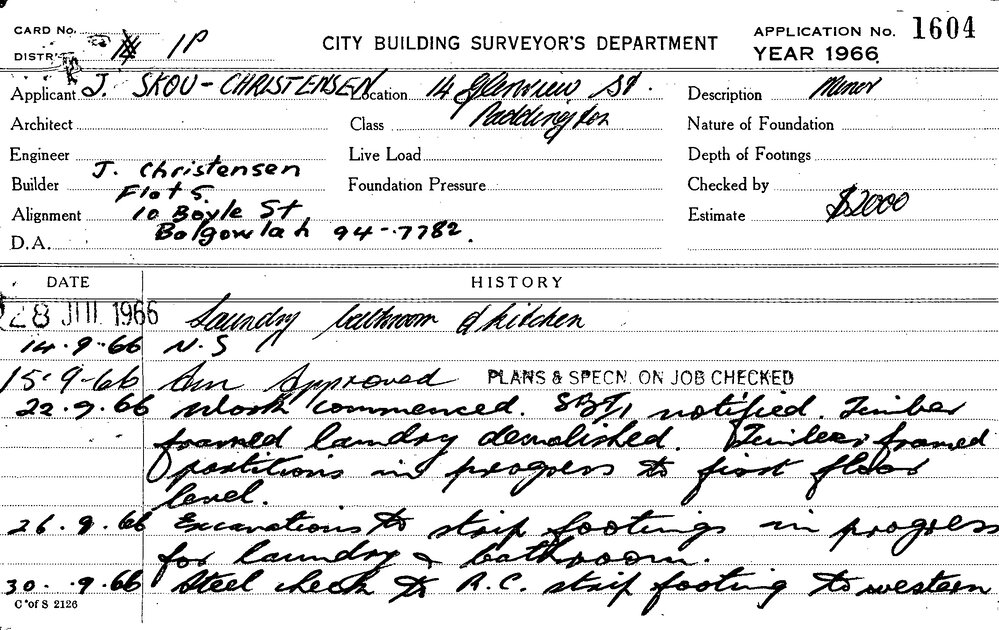 CARD No. APPLICATION No. 1604
DISTRICT 1P CITY BUILDING SURVEYOR'S DEPARTMENT YEAR 1966
Applicant J. SKOU-CHRISTENSEN Location 14 Glenview St. Description Minor
Architect Class Paddington Nature of Foundation
Engineer Live Load Depth of Footings
Builder J. Christensen Foundation Pressure Checked by
Flat 5.
Alignment 10 Boyle St Estimate $2000
D.A. Balgowlah 94-7782.
DATE HISTORY
28 JUL 1966 Laundry bathroom & kitchen
14.9.66 N.S
15.9.66 Approved PLANS & SPECN. ON JOB CHECKED
22.9.66 Work commenced. notified. Timber
framed laundry demolished. Timber framed
partitions in progress to first floor
level.
26.9.66 Excavations to strip footings in progress
for laundry & bathroom.
30.9.66 Steel check to R.C. strip footing to western
C of S 2126